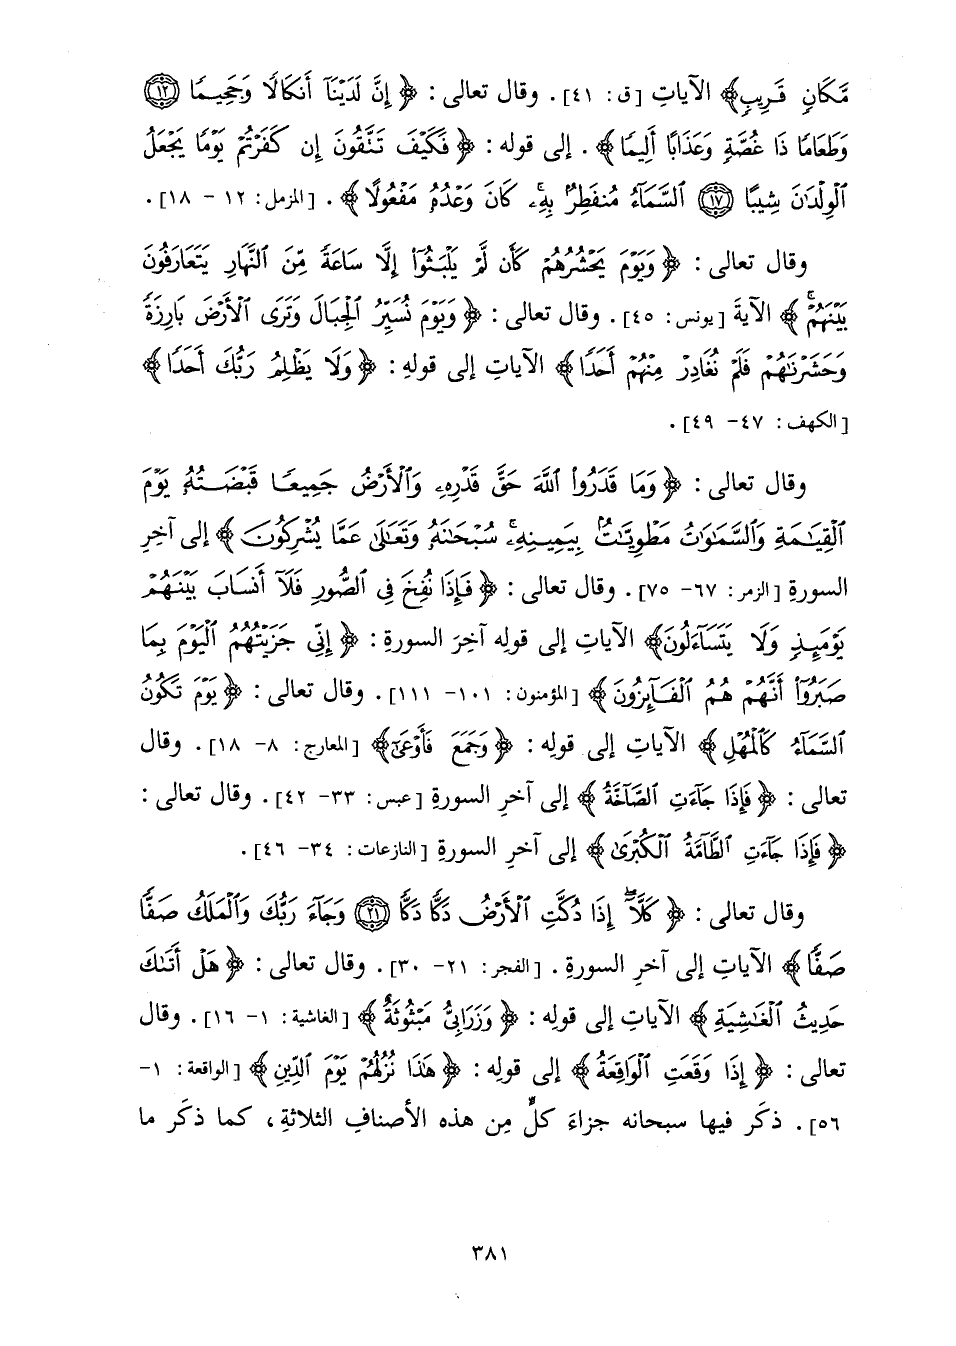 مَّكَانٍ قَرِيبٍ﴾ الآياتِ [ق: ٤١]. وقال تعالى: ﴿إِنَّ لَدَيْنَآ أَنكَالًا وَجَحِيمًا ﴿١٢﴾
وَطَعَامًا ذَا غُصَّةٍ وَعَذَابًا أَلِيمًا﴾. إلى قوله: ﴿فَكَيْفَ تَتَّقُونَ إِن كَفَرْتُمْ يَوْمًا يَجْعَلُ
ٱلْوِلْدَٰنَ شِيبًا ﴿١٧﴾ ٱلسَّمَآءُ مُنفَطِرٌۢ بِهِۦۚ كَانَ وَعْدُهُۥ مَفْعُولًا﴾. [المزمل: ١٢ - ١٨].
وقال تعالى: ﴿وَيَوْمَ يَحْشُرُهُمْ كَأَن لَّمْ يَلْبَثُوٓا۟ إِلَّا سَاعَةً مِّنَ ٱلنَّهَارِ يَتَعَارَفُونَ
بَيْنَهُمْۚ﴾ الآيةَ [يونس: ٤٥]. وقال تعالى: ﴿وَيَوْمَ نُسَيِّرُ ٱلْجِبَالَ وَتَرَى ٱلْأَرْضَ بَارِزَةً
وَحَشَرْنَٰهُمْ فَلَمْ نُغَادِرْ مِنْهُمْ أَحَدًا﴾ الآياتِ إلى قولهِ: ﴿وَلَا يَظْلِمُ رَبُّكَ أَحَدًا﴾
[الكهف: ٤٧- ٤٩].
وقال تعالى: ﴿وَمَا قَدَرُوا۟ ٱللَّهَ حَقَّ قَدْرِهِۦ وَٱلْأَرْضُ جَمِيعًا قَبْضَتُهُۥ يَوْمَ
ٱلْقِيَٰمَةِ وَٱلسَّمَٰوَٰتُ مَطْوِيَّٰتٌۢ بِيَمِينِهِۦۚ سُبْحَٰنَهُۥ وَتَعَٰلَىٰ عَمَّا يُشْرِكُونَ﴾ إلى آخرِ
السورةِ [الزمر: ٦٧- ٧٥]. وقال تعالى: ﴿فَإِذَا نُفِخَ فِى ٱلصُّورِ فَلَآ أَنسَابَ بَيْنَهُمْ
يَوْمَئِذٍ وَلَا يَتَسَآءَلُونَ﴾ الآياتِ إلى قوله آخِرَ السورةِ: ﴿إِنِّى جَزَيْتُهُمُ ٱلْيَوْمَ بِمَا
صَبَرُوٓا۟ أَنَّهُمْ هُمُ ٱلْفَآئِزُونَ﴾ [المؤمنون: ١٠١- ١١١]. وقال تعالى: ﴿يَوْمَ تَكُونُ
ٱلسَّمَآءُ كَٱلْمُهْلِ﴾ الآياتِ إلى قولِه: ﴿وَجَمَعَ فَأَوْعَىٰٓ﴾ [المعارج: ٨- ١٨]. وقال
تعالى: ﴿فَإِذَا جَآءَتِ ٱلصَّآخَّةُ﴾ إلى آخرِ السورةِ [عبس: ٣٣- ٤٢]. وقال تعالى:
﴿فَإِذَا جَآءَتِ ٱلطَّآمَّةُ ٱلْكُبْرَىٰ﴾ إلى آخرِ السورةِ [النازعات: ٣٤- ٤٦].
وقال تعالى: ﴿كَلَّآ إِذَا دُكَّتِ ٱلْأَرْضُ دَكًّا دَكًّا ﴿٢١﴾ وَجَآءَ رَبُّكَ وَٱلْمَلَكُ صَفًّا
صَفًّا﴾ الآياتِ إلى آخرِ السورةِ. [الفجر: ٢١- ٣٠]. وقال تعالى: ﴿هَلْ أَتَىٰكَ
حَدِيثُ ٱلْغَٰشِيَةِ﴾ الآياتِ إلى قولِه: ﴿وَزَرَابِىُّ مَبْثُوثَةٌ﴾ [الغاشية: ١- ١٦]. وقال
تعالى: ﴿إِذَا وَقَعَتِ ٱلْوَاقِعَةُ﴾ إلى قولِه: ﴿هَٰذَا نُزُلُهُمْ يَوْمَ ٱلدِّينِ﴾ [الواقعة: ١-
٥٦]. ذكَر فيها سبحانه جزاءَ كلٍّ مِن هذه الأصنافِ الثلاثةِ، كما ذكَر ما
٣٨١